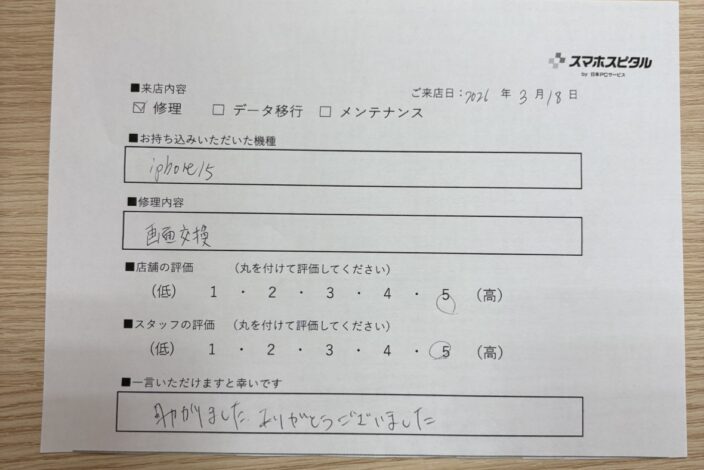 スマホスピタル
by 日本PCサービス
■来店内容
ご来店日:2026 年 3 月 18 日
☑ 修理 □ データ移行 □ メンテナンス
■お持ち込みいただいた機種
iphone15
■修理内容
画面交換
■店舗の評価 (丸を付けて評価してください)
(低) 1 ・ 2 ・ 3 ・ 4 ・ 5 (高)
■スタッフの評価 (丸を付けて評価してください)
(低) 1 ・ 2 ・ 3 ・ 4 ・ 5 (高)
■一言いただけますと幸いです
助かりました ありがとうございました